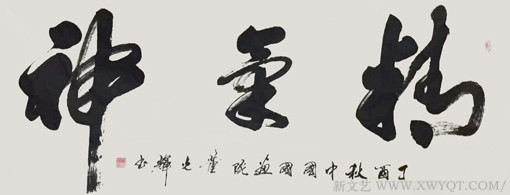 精氣神
丁酉秋中國國畫院董光輝書
新文艺 WWW.XWYQT.COM